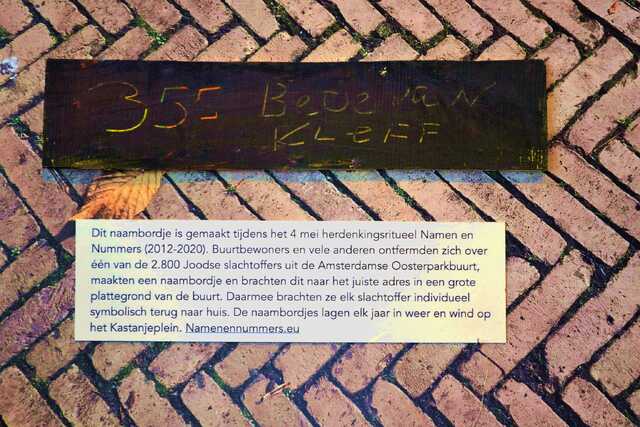 355 Bepe van
Kleff
Dit naambordje is gemaakt tijdens het 4 mei herdenkingsritueel Namen en
Nummers (2012-2020). Buurtbewoners en vele anderen ontfermden zich over
één van de 2.800 Joodse slachtoffers uit de Amsterdamse Oosterparkbuurt,
maakten een naambordje en brachten dit naar het juiste adres in een grote
plattegrond van de buurt. Daarmee brachten ze elk slachtoffer individueel
symbolisch terug naar huis. De naambordjes lagen elk jaar in weer en wind op
het Kastanjeplein. Namenennummers.eu